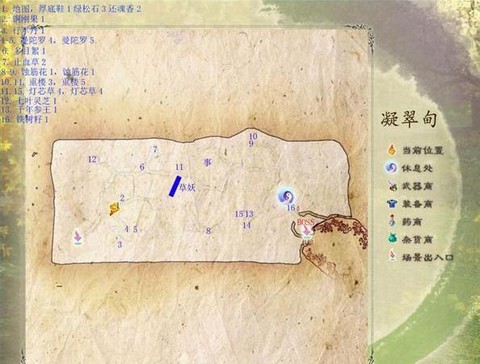 1. 地图，厚底鞋 1 绿松石 3 还魂香 2
2. 钢刚果 1
3. 行水丹 1
4、5. 曼陀罗 4，曼陀罗 5
6. 多目絮 1
7. 止血草 2
8、9. 蚀筋花 1，蚀筋花 1
10、11. 重楼 3，重楼 5
11、15. 灯芯草 4，灯芯草 4
12. 七叶灵芝 1
13. 千年参王 1
16. 铁树籽 1
凝翠甸
当前位置
休息处
武器商
装备商
药商
杂货商
场景出入口
10
9
7
12
6
11
事
草妖
2
16
15 13
BOSS
14
4 5
8
3